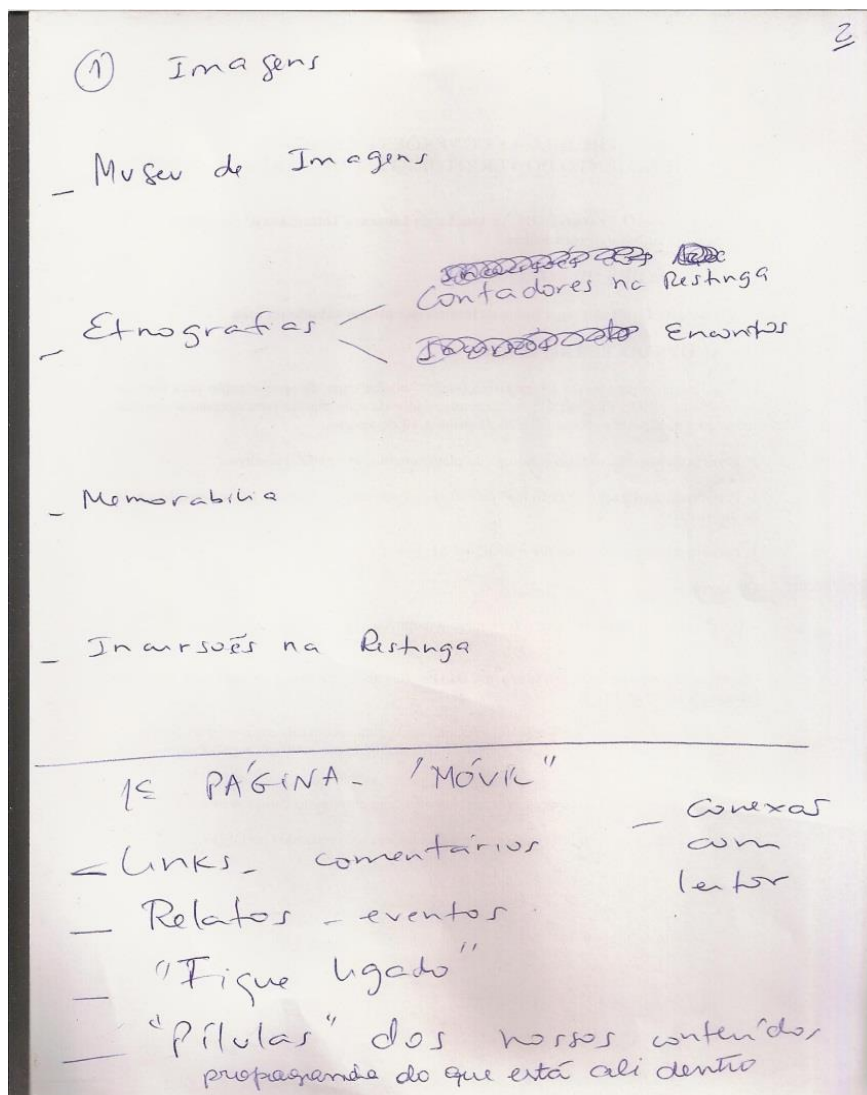 2
① Imagens
_ Museu de Imagens
_ Etnografias < Contadores na Restinga
Encontos
_ Memorabilia
_ Incursões na Restinga
1ª PÁGINA - "MÓVIL"
_ Links - comentários _ conexão com leitor
_ Relatos - eventos
_ "Fique ligado"
_ "Pílulas" dos nossos conteúdos,
propaganda do que está ali dentro